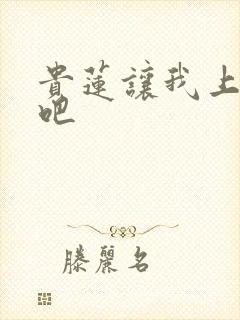 貴蓮讓我上
吧
滕麗名